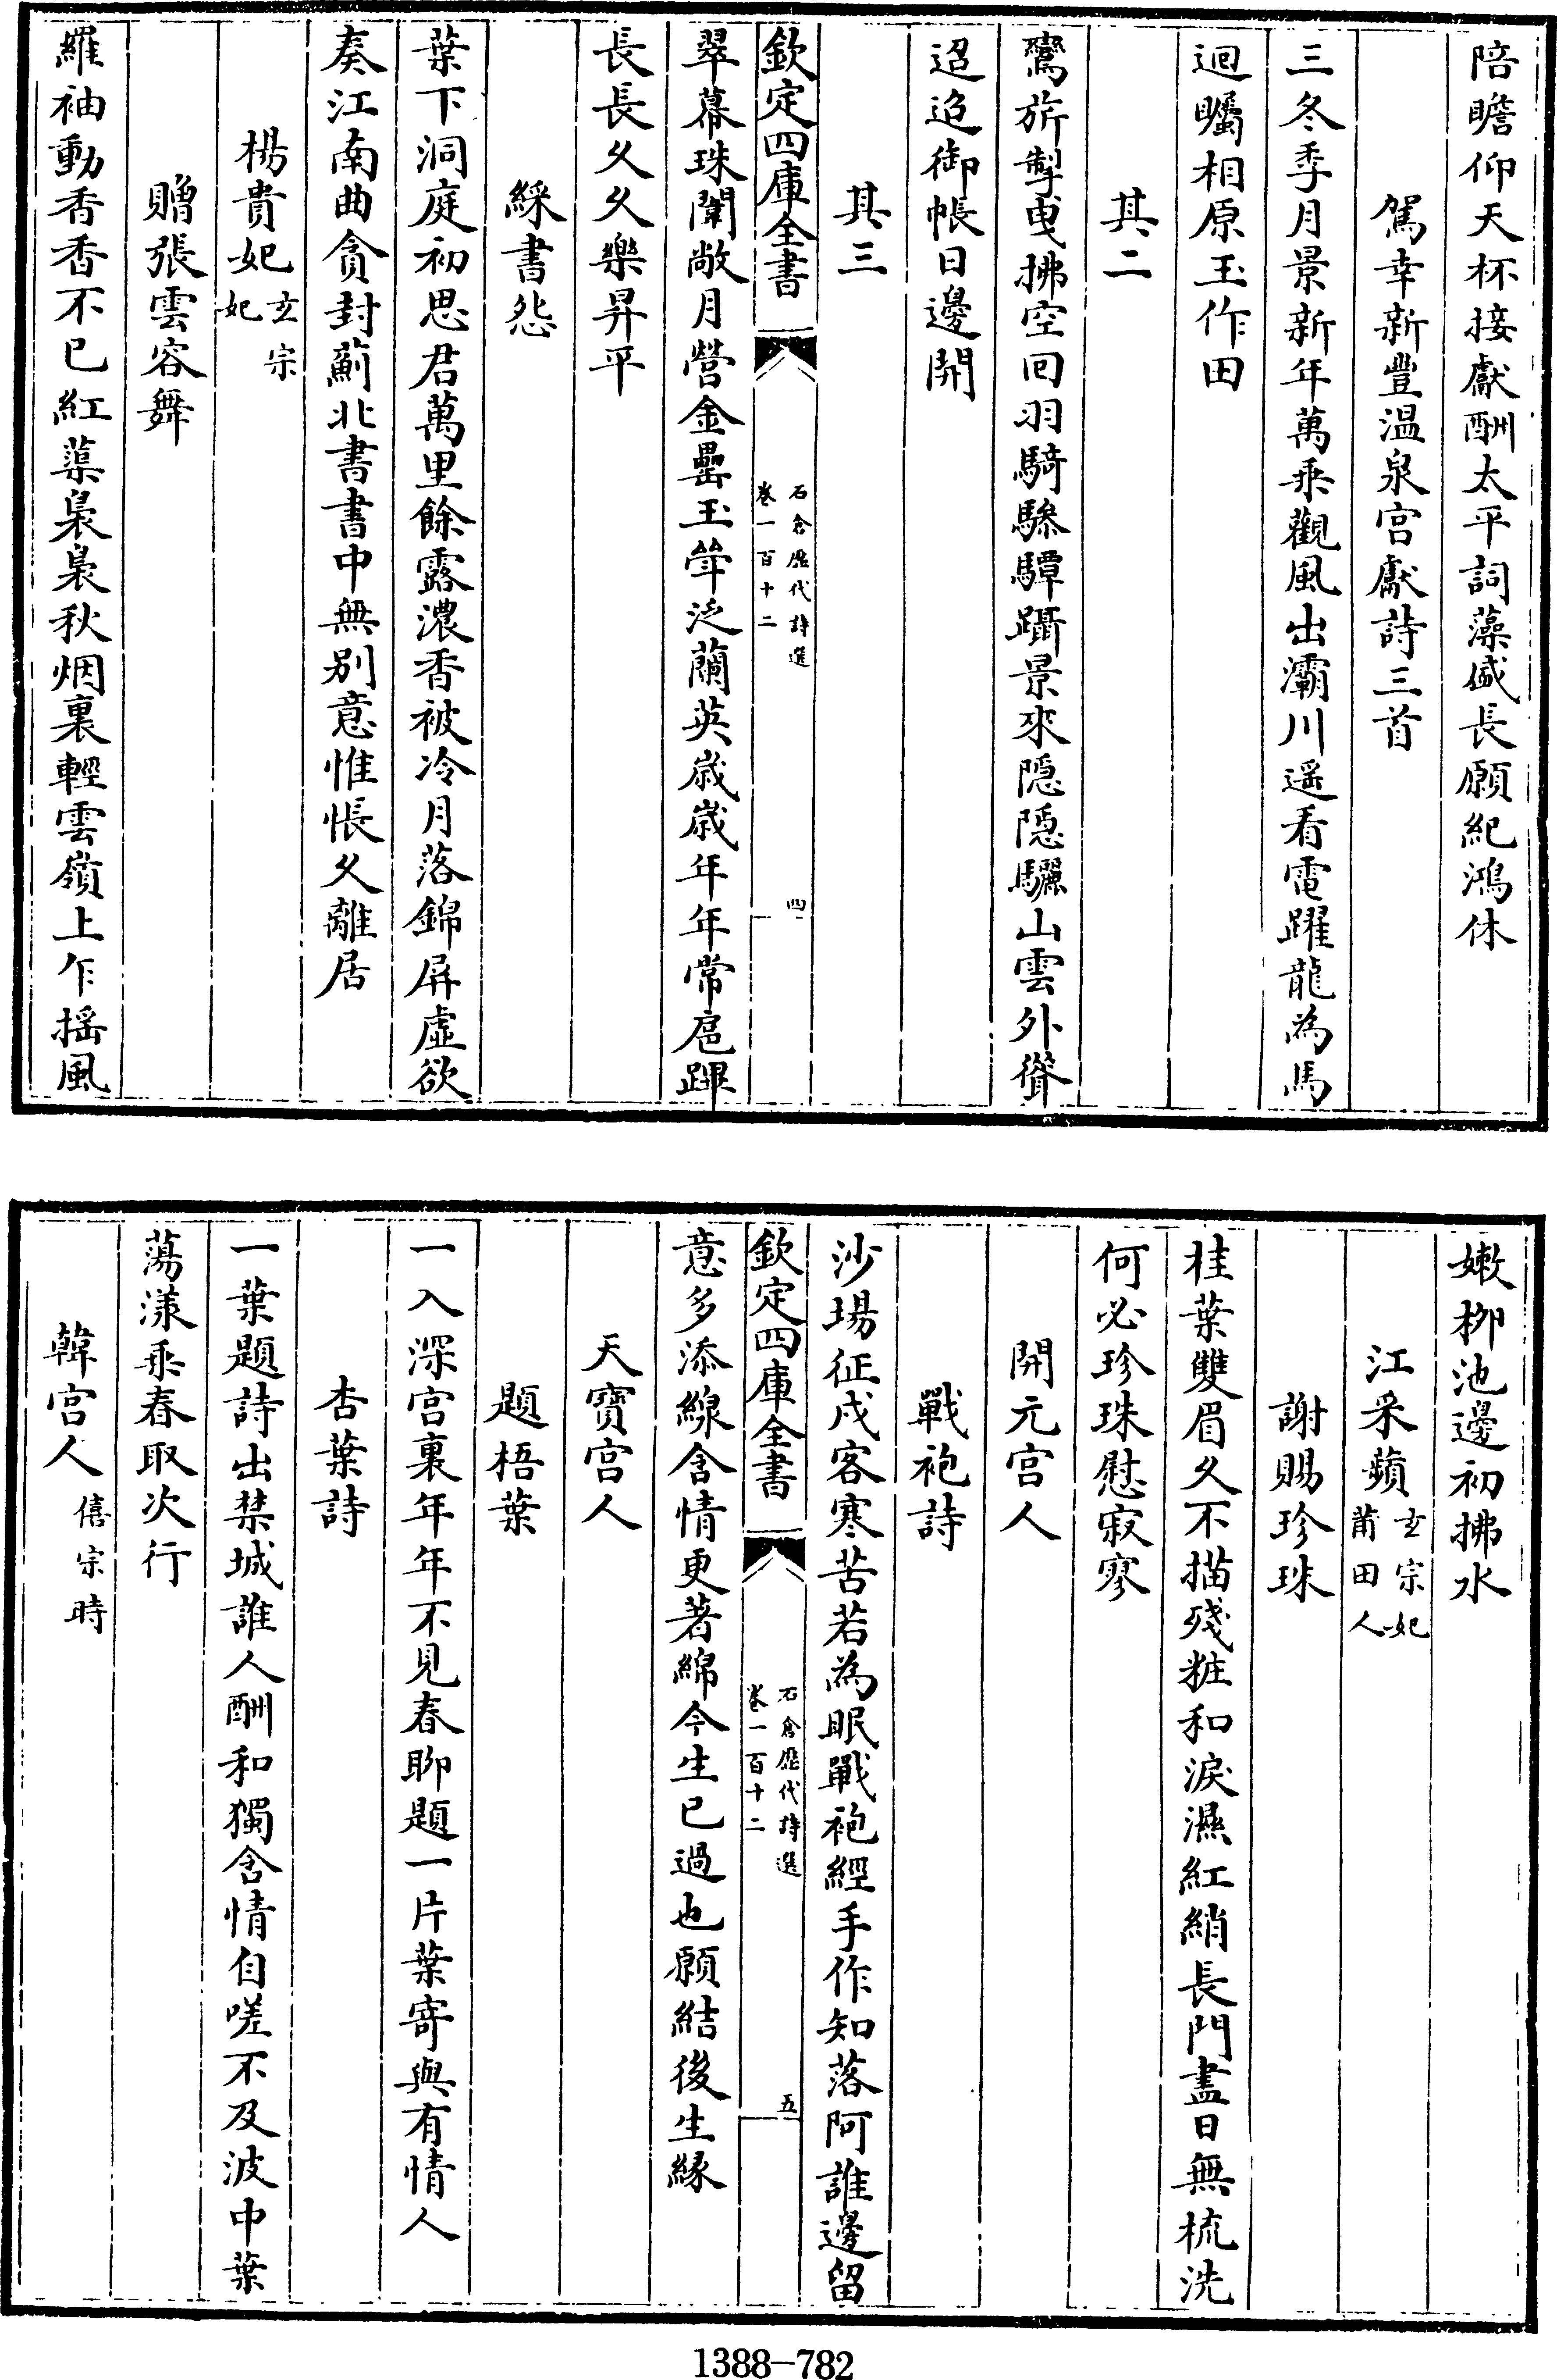 陪瞻仰天杯接獻酬太平詞藻盛長願紀鴻休
駕幸新豐温泉宫獻詩三首
三冬季月景新年萬乘觀風出灞川遥看電躍龍為馬
迴矚相原玉作田
其二
鸞旂掣曳拂空回羽騎驂驔躡景來隠隠驪山雲外聳
迢迢御帳日邊開
其三
翠幕珠闈敞月營金罍玉斚泛蘭英嵗嵗年年常扈蹕
長長久久樂昇平
綵書怨
葉下洞庭初思君萬里餘露濃香被冷月落錦屏虚欲
奏江南曲貪封薊北書書中無别意惟悵久離居
楊貴妃玄宗妃
贈張雲容舞
羅袖動香香不已紅蕖裊裊秋烟裏輕雲嶺上乍揺風
欽定四庫全書
石倉歴代詩選
卷一百十二
四
嫩栁池邊初拂水
江采蘋玄宗妃莆田人
謝賜珍珠
桂葉雙眉久不描殘粧和淚濕紅綃長門盡日無梳洗
何必珍珠慰寂寥
開元宫人
戰袍詩
沙場征戍客寒苦若為眠戰袍經手作知落阿誰邊留
意多添線含情更著綿今生已過也願結後生緣
天寶宫人
題梧葉
一入深宫裏年年不見春聊題一片葉寄與有情人
杏葉詩
一葉題詩出禁城誰人酬和獨含情自嗟不及波中葉
蕩漾乘春取次行
韓宫人僖宗時
欽定四庫全書
石倉歴代詩選
卷一百十二
五
1388-782